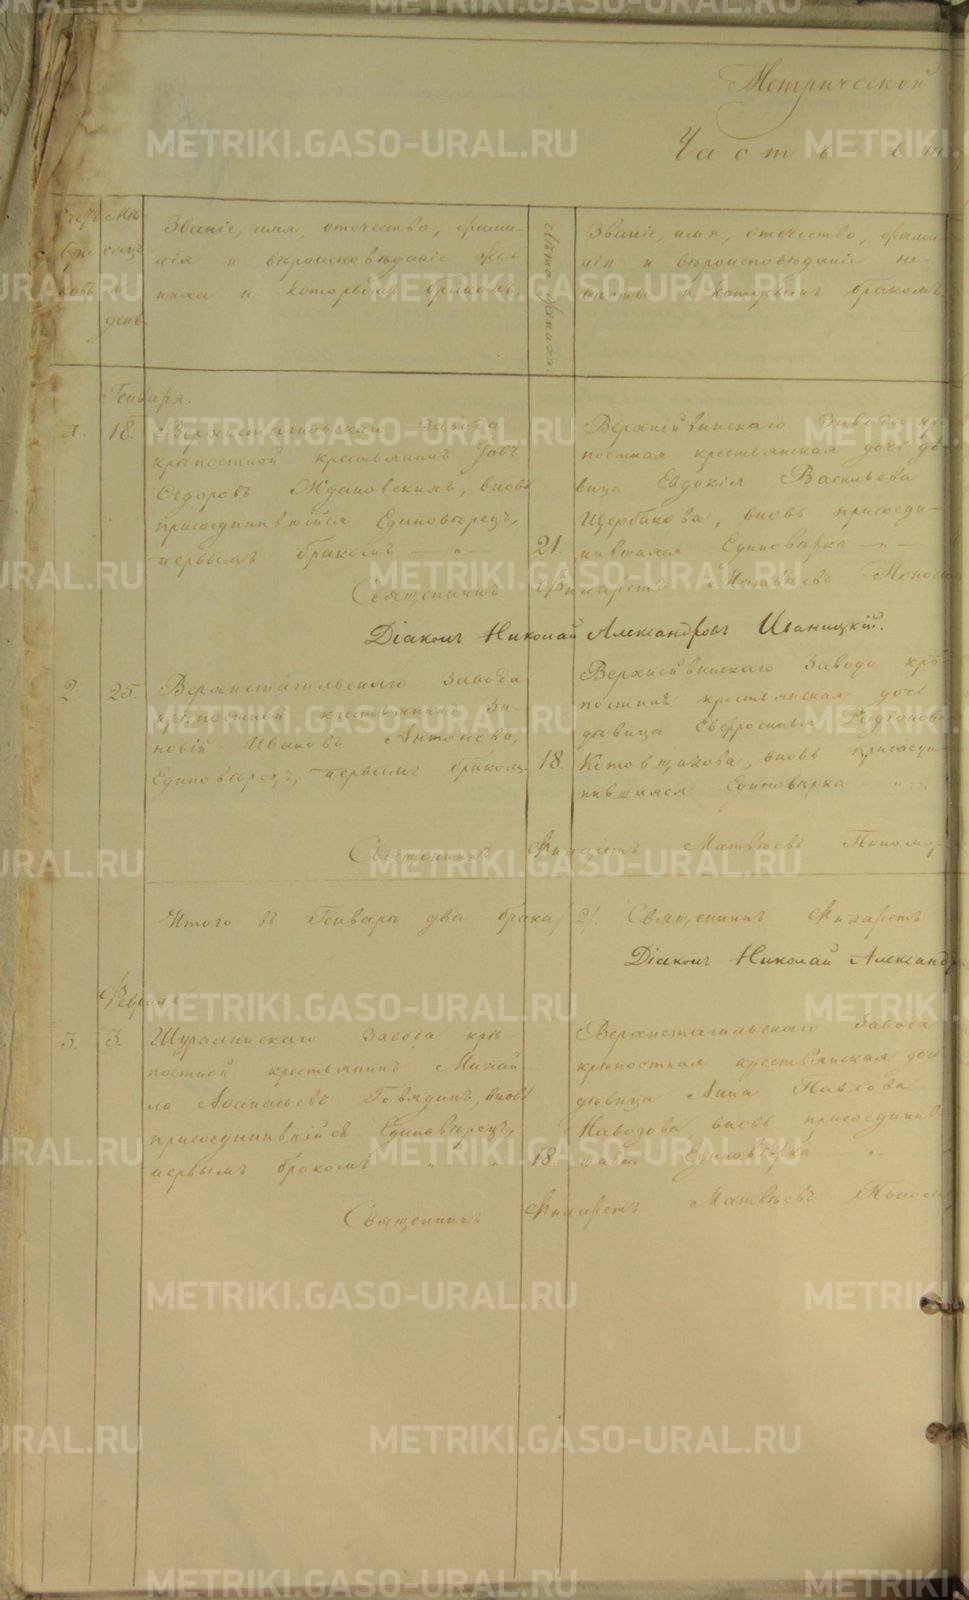 METRIKI.GASO-URAL.RU
Метрической
Часть вт
Счетъ браковъ
Мѣсяцъ и день
Званіе, имя, отечество, фами-
лія и вѣроисповѣданіе же-
ниха и которымъ бракомъ.
Лѣта жениха.
Званіе, имя, отечество, фами-
лія и вѣроисповѣданіе не-
вѣсты и которымъ бракомъ
Генваря.
1. 18.
завода
крѣпостной крестьянинъ Іовъ
Ѳедоровъ Ждановскихъ, вновь
присоединившійся Единовѣрецъ,
первымъ бракомъ — „ —
21.
Верхнейвинскаго Завода крѣ-
постная крестьянская дочь дѣ-
вица Евдокія Васильева
Щербакова, вновь присоеди-
нившаяся Единовѣрка — „ —
Священникъ Филаретъ Матвѣевъ Поном
Діаконъ Николай Александровъ Иваницкій.
2 25.
Верхнетагильскаго Завода
крѣпостной крестьянинъ Зи-
новій Ивановъ Антоновъ,
Единовѣрецъ, первымъ бракомъ
18.
Верхнейвинскаго Завода крѣ-
постная крестьянская дочь
дѣвица Евфросинья Родіонова
Котовщикова, вновь присоеди-
нившаяся Единовѣрка — „ —
Священникъ Филаретъ Матвѣевъ Пономар
Итого въ Генварѣ два брака /2/. Священникъ Филаретъ
Діаконъ Николай Александ
Февраля
3. 3.
Шуралинскаго Завода крѣ-
постной крестьянинъ Михай-
ло Аѳанасьевъ Говядинъ, вновь
присоединившійся Единовѣрецъ,
первымъ бракомъ — „ —
18.
Верхнетагильскаго Завода
крѣпостная крестьянская дочь
дѣвица Анна Павлова
вновь присоединив-
шаяся Единовѣрка — „ —
Священникъ Филаретъ Матвѣевъ Поном